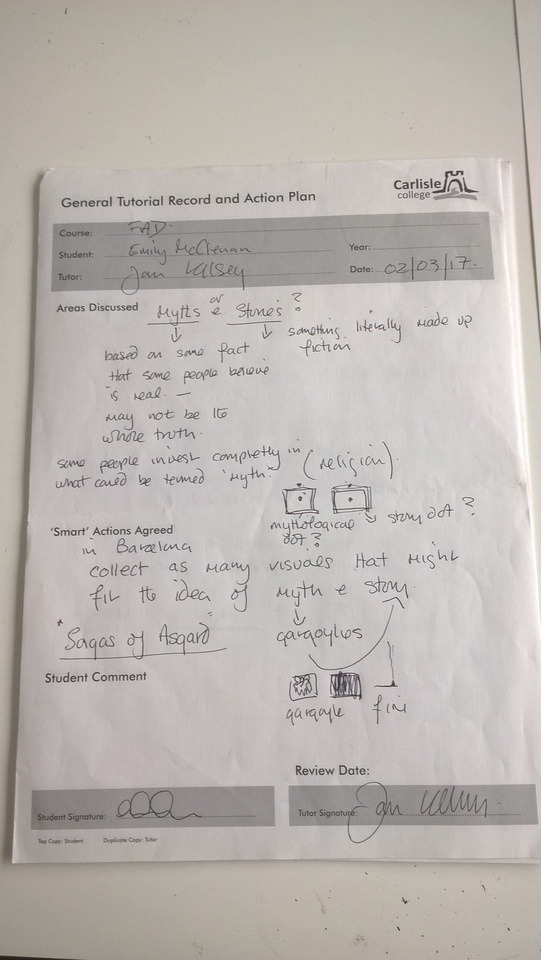 General Tutorial Record and Action Plan
Carlisle
college
Course: FAD.
Student: Emily
Year:
Tutor: Jan
Date: 02/03/17.
Areas Discussed Myths or & Stories?
something literally made up
fiction
based on some fact
that some people believe
is real —
may not be the
whole truth.
some people invest completly in (religion).
what could be termed 'myth'.
mythological dot?
story dot?
'Smart' Actions Agreed
in Barcelona
collect as many visuals that might
fit the idea of myth & story.
gargoyles
* "Sagas of Asgard"
Student Comment
gargoyle
Review Date:
Student Signature:
Tutor Signature: Jan
Top Copy: Student Duplicate Copy: Tutor